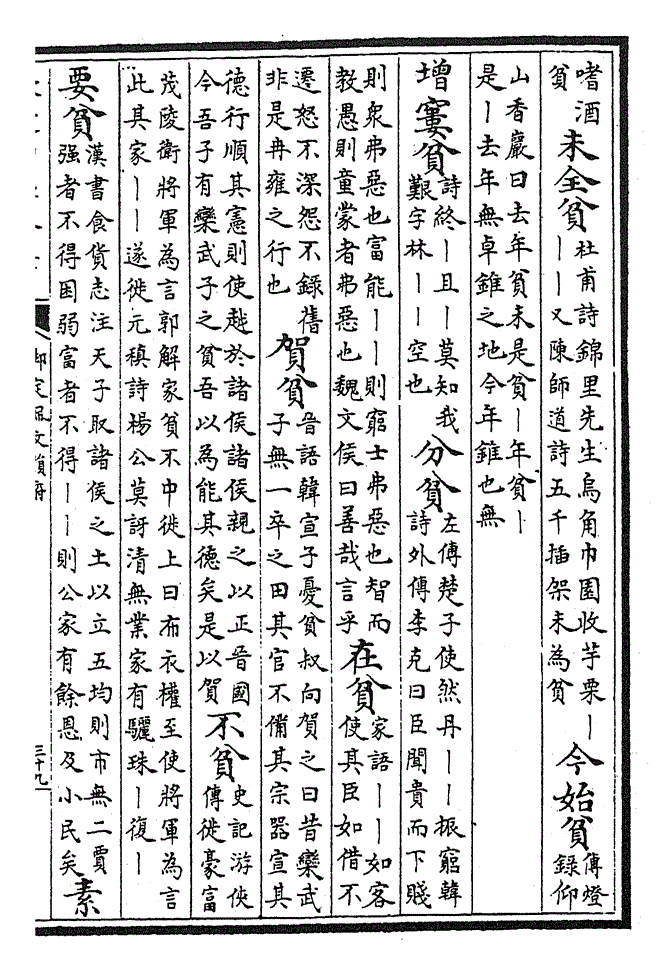 嗜酒
貧
未全貧
杜甫詩錦里先生烏角巾園收芋栗丨
丨丨又陳師道詩五千插架未為貧
今始貧
傳燈
錄仰
山香嚴曰去年貧未是貧丨年貧丨
是丨去年無卓錐之地今年錐也無
增
窶貧
詩終丨且丨莫知我
艱字林丨丨空也
分貧
左傳楚子使然丹丨丨振窮韓
詩外傳李克曰臣聞貴而下賤
則衆弗惡也富能丨丨則窮士弗惡也智而
教愚則童蒙者弗惡也魏文侯曰善哉言乎
在貧
家語丨丨如客
使其臣如借不
遷怒不深怨不錄舊
非是冉雍之行也
賀貧
晉語韓宣子憂貧叔向賀之曰昔欒武
子無一卒之田其官不備其宗器宣其
德行順其憲則使越於諸侯諸侯親之以正晉國
今吾子有欒武子之貧吾以為能其德矣是以賀
不貧
史記游俠
傳徙豪富
茂陵衛將軍為言郭解家貧不中徙上曰布衣權至使將軍為言
此其家丨丨遂徙元稹詩楊公莫訝清無業家有驪珠丨復丨
要貧
漢書食貨志注天子取諸侯之土以立五均則市無二賈
强者不得困弱富者不得丨丨則公家有餘恩及小民矣
素
御定佩文韻府
三十九